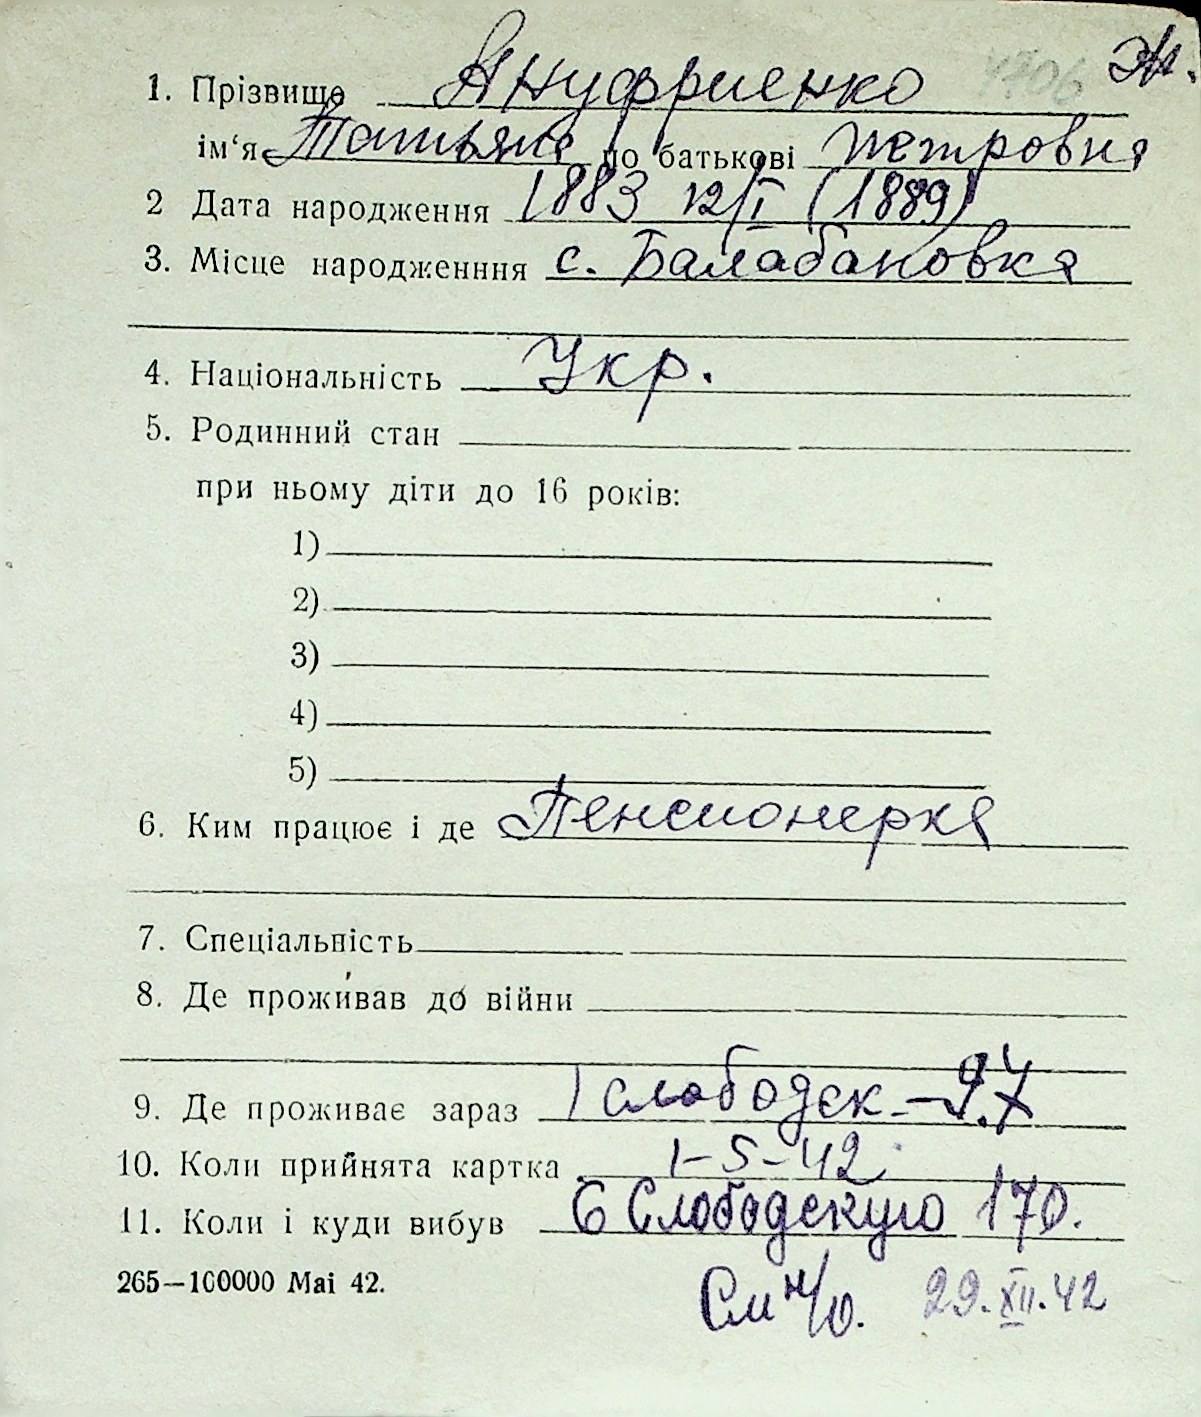 4706 Ж.
1. Прізвище Ануфриенко
ім‘я Татьяна по батькові Петровна
2 Дата народження 1883 12/I (1889)
3. Місце народженння с. Балабановка
4. Національність Укр.
5. Родинний стан
при ньому діти до 16 років:
1)
2)
3)
4)
5)
6. Ким працює і де Пенсионерка
7. Спеціальність
8. Де проживав до війни
9. Де проживає зараз 1 Слободск. - 97
10. Коли прийнята картка 1-5-42
11. Коли і куди вибув 6 Слободскую 170.
265—100000 Mai 42.
См н/о. 29.XII.42